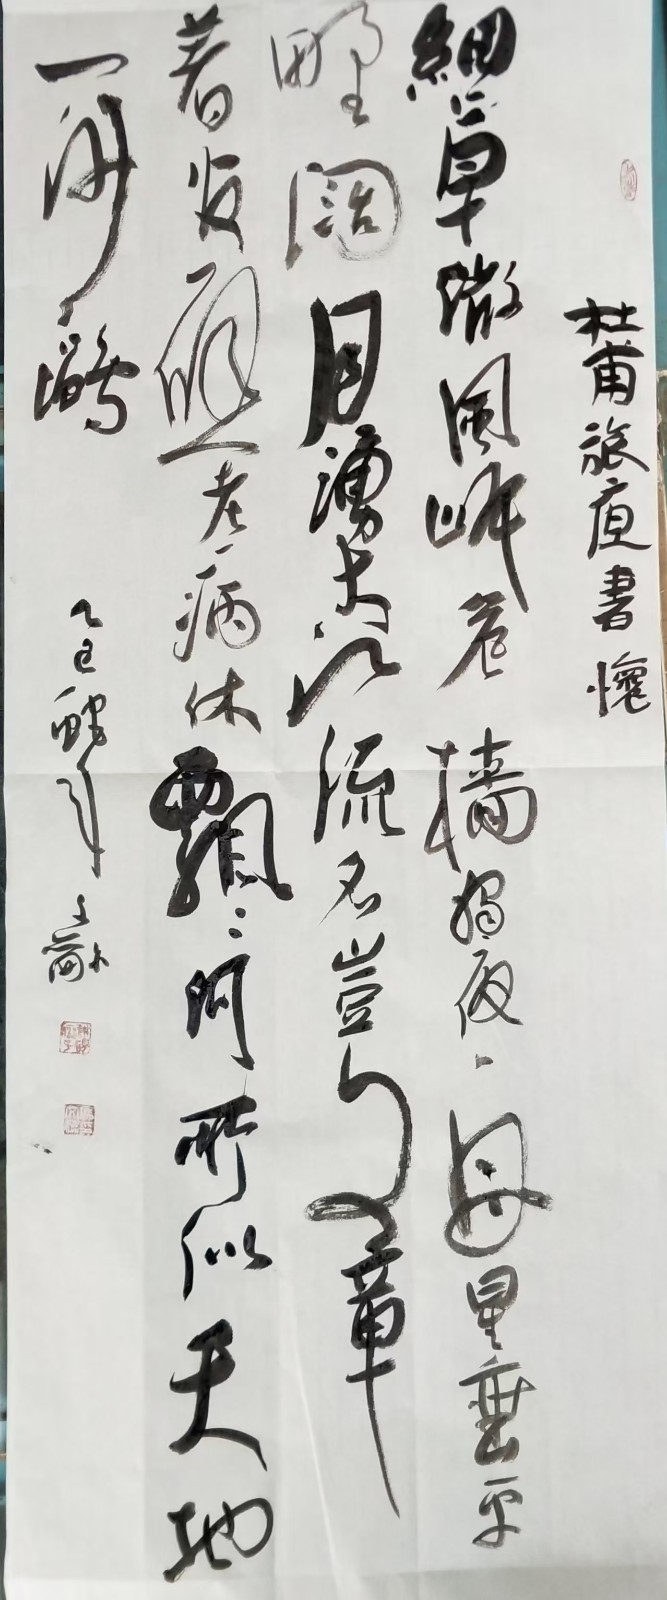 杜甫旅夜書懷
細草微風岸危檣獨夜舟星垂平
野闊月湧大江流名豈文章
著官應老病休飄〻何所似天地
一沙鷗
乙巳